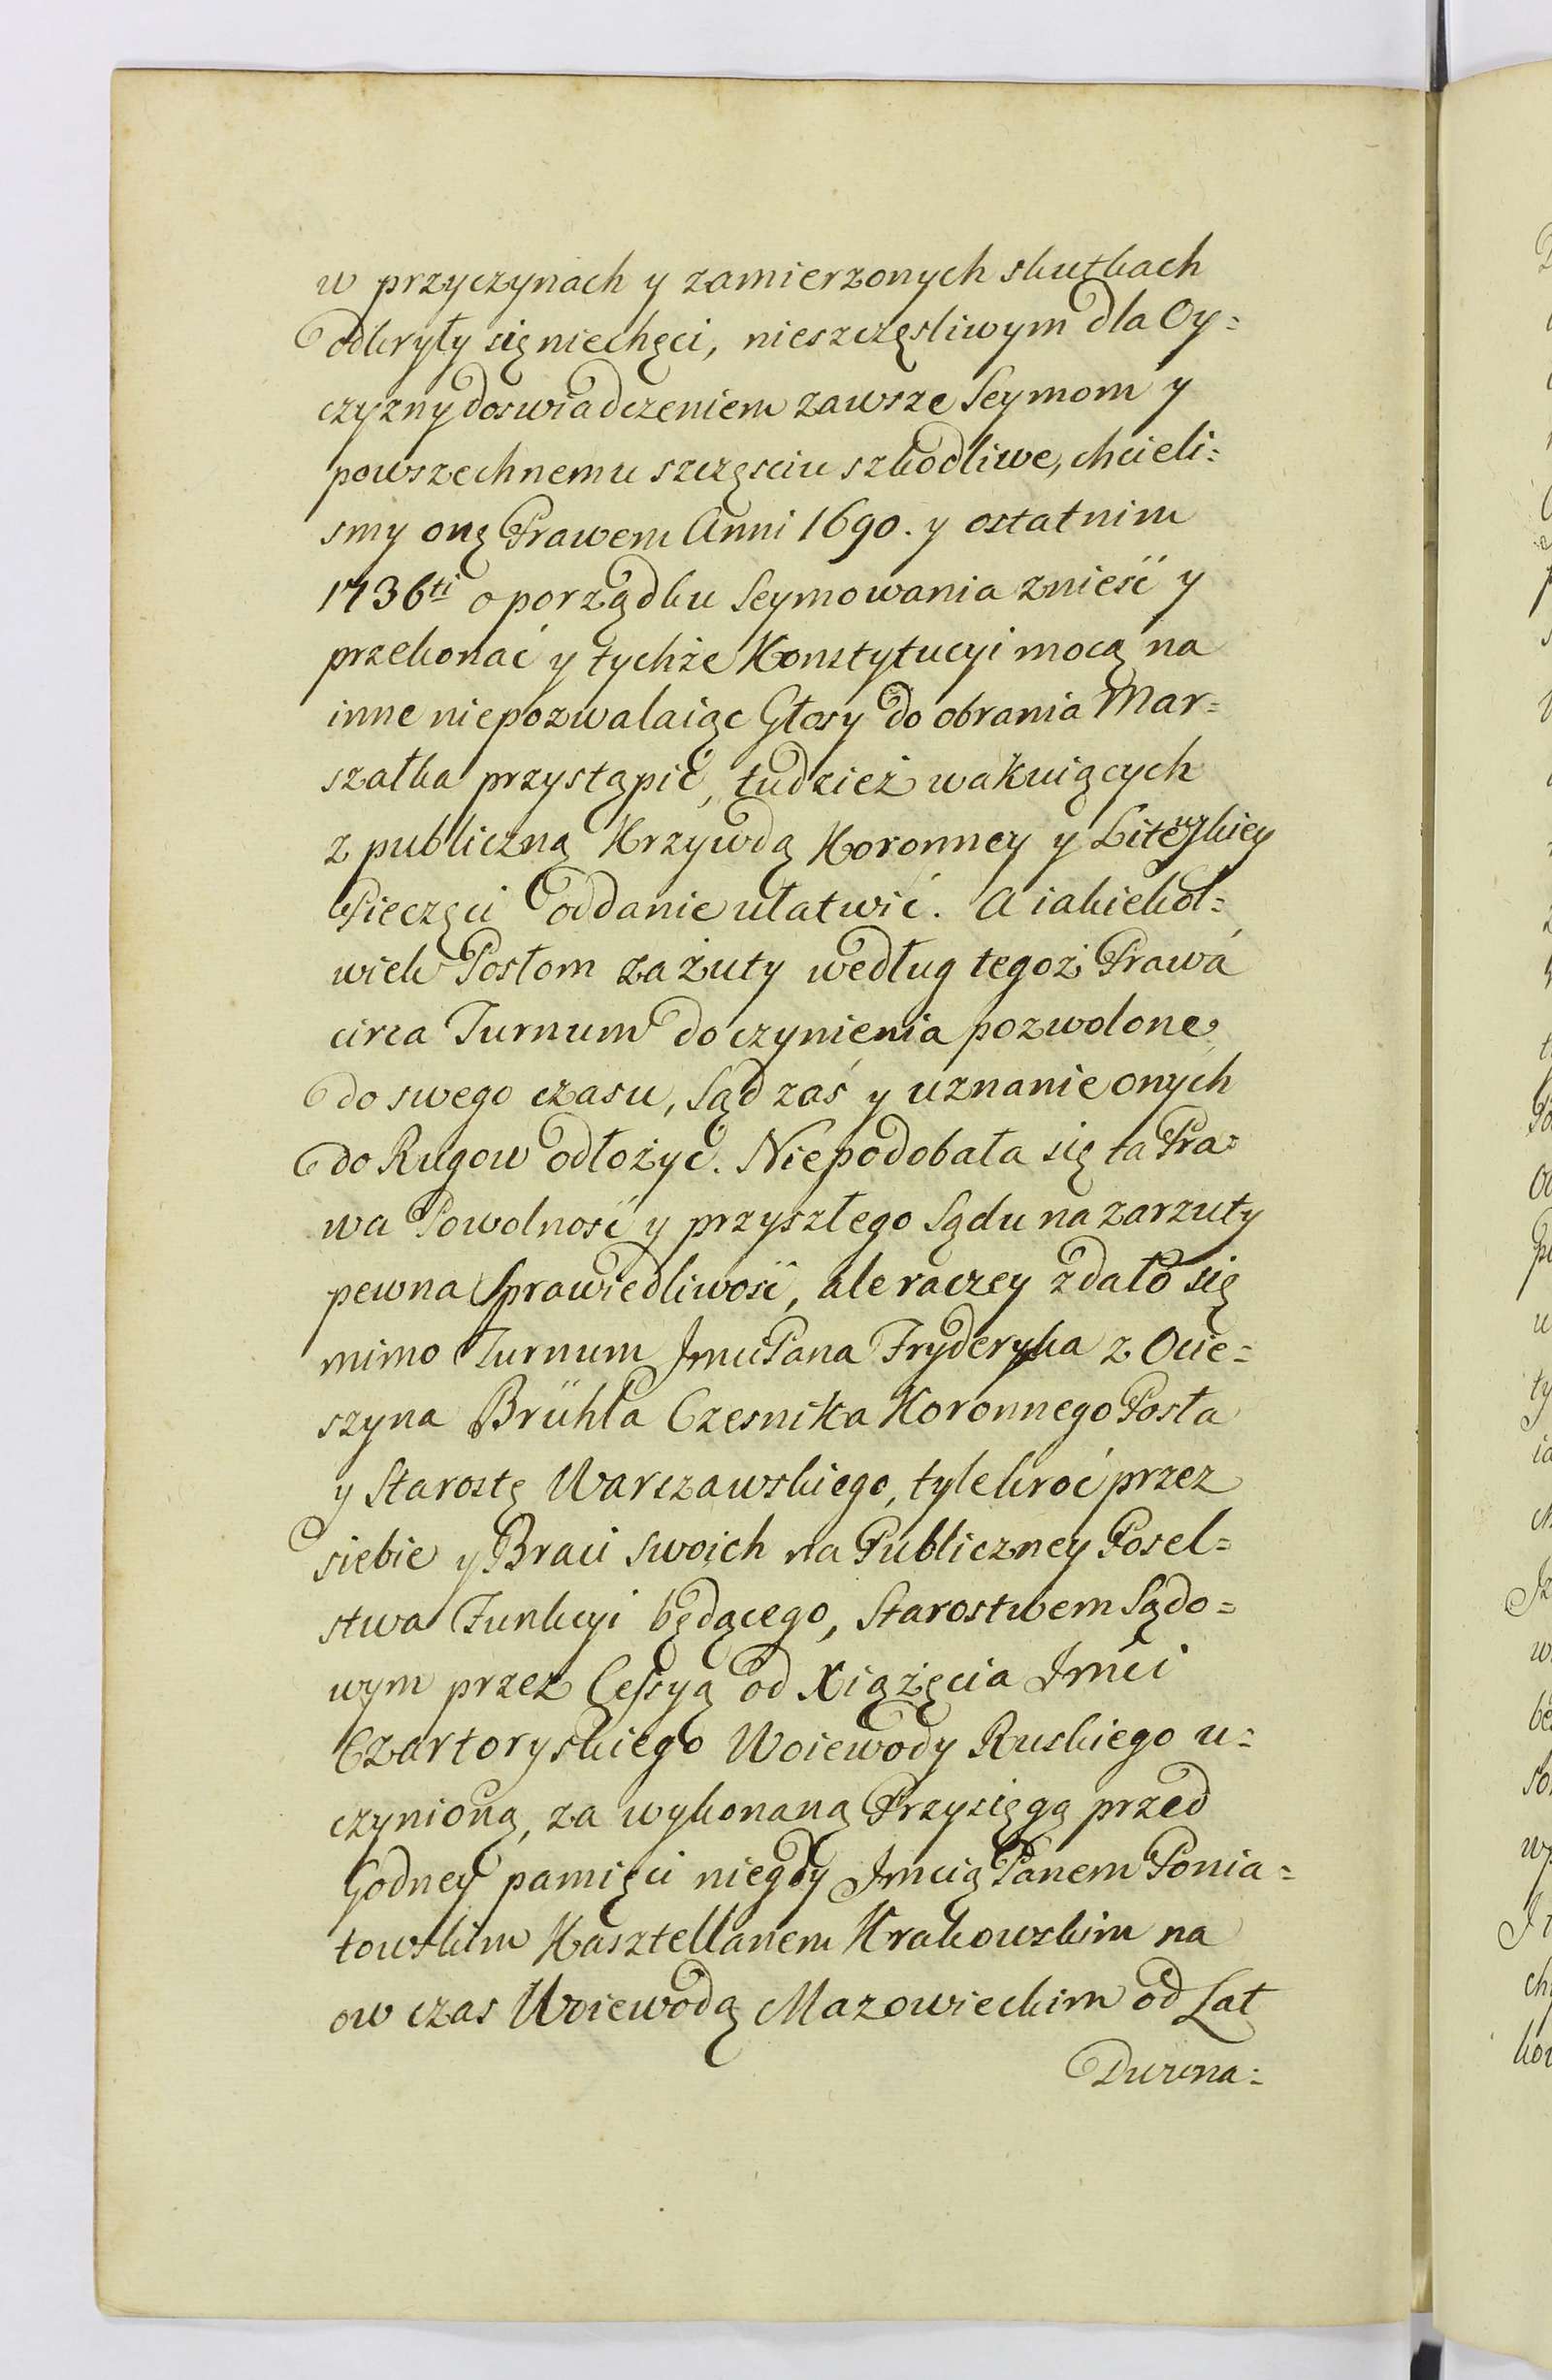 w przyczynach y zamierzonych skutkach
odkryły się niechęci, nieszczęsliwym dla Oy=
czyzny doswiadczeniem zawsze Seymom y
powszechnemu szczęsciu szkodliwe, chcieli=
smy onę Prawem Anni 1690. y ostatnim
1736ti o porządku Seymowania znieść y
przekonać y tychże Konstytucyi mocą na
inne niepozwalaiąc Głosy do obrania Mar=
szałka przystąpić, tudzież wakuiących
z publiczną Krzywdą Koronney y Litewskiey
Pieczęci oddanie ułatwić. A iakiekol=
wiek Posłom zażuty według tegoż Prawa
circa Turnum do czynienia pozwolone
do swego czasu, Sąd zaś y uznanie onych
do Rugow odłożyć. Niepodobała się ta Pra=
wa Powolność y przyszłego Sądu na zarzuty
pewna Sprawiedliwość, ale raczey zdało się
mimo Turnum Jmci Pana Fryderyka z Ocie=
szyna Brühla Czesnika Koronnego Posła
y Starostę Warszawskiego, tylekroć przez
siebie y Braci swoich na Publiczney Posel=
stwa Funkcyi będącego, Starostwem Sądo=
wym przez Cessyą od Xiążęcia Jmci
Czartoryskiego Woiewody Ruskiego u=
czynioną, za wykonaną Przysięgą przed
Godney pamięci niegdy Jmcią Panem Ponia=
towskim Kasztellanem Krakowskim na
ow czas Woiewodą Mazowieckim od Lat
Dwuna=